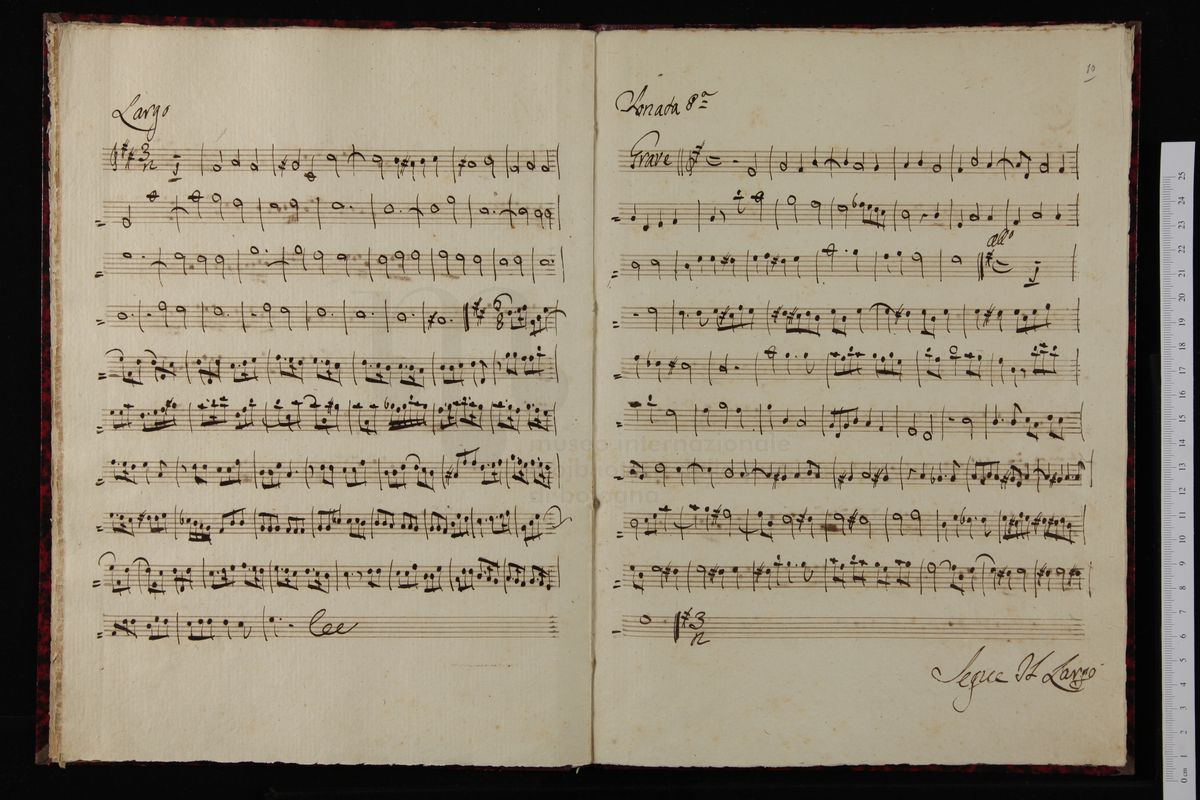 Largo
3
2
6
8
10
Sonata 8ª
Grave
All°
3
2
Segue Il Largo
museo internazionale
di bologna
0 cm 1 2 3 4 5 6 7 8 9 10 11 12 13 14 15 16 17 18 19 20 21 22 23 24 25